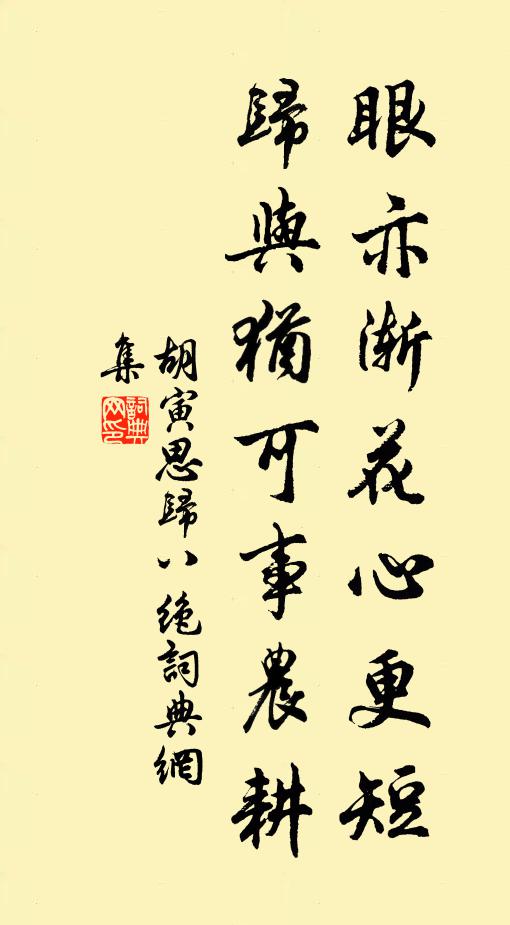 眼亦漸花心更短
歸與猶可事農耕
胡寅思歸八絶詞典網
集
詞典
网印